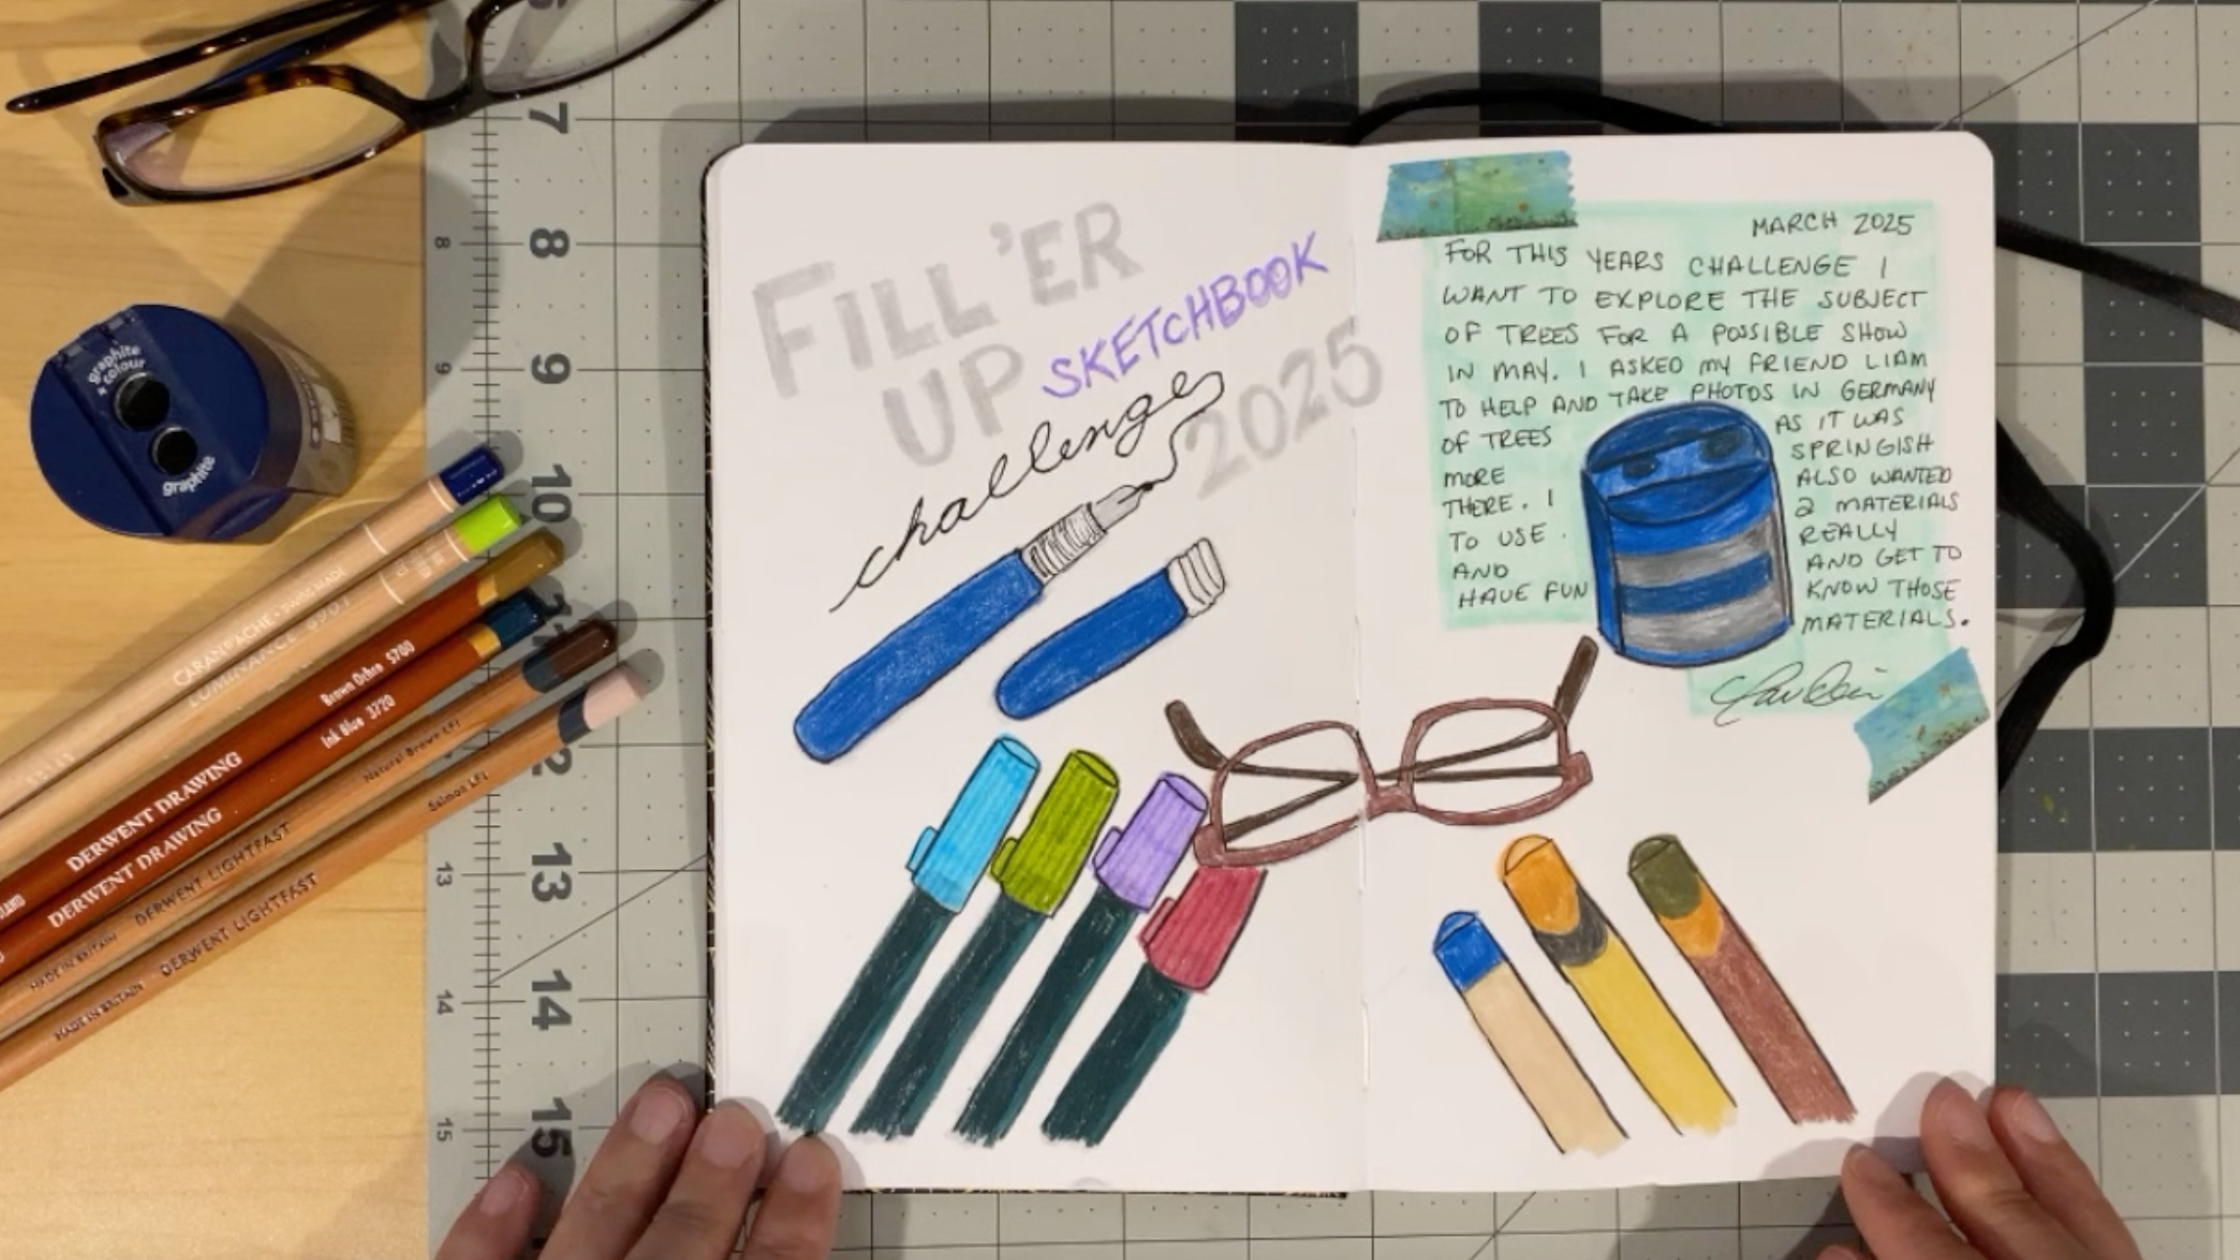 6
7
8
8
9
9
10
11
12
13
13
14
14
15
15
graphite
+ colour
graphite
CARAN D'ACHE • SWISS MADE
LUMINANCE 6901
Brown Ochre 5700
DERWENT DRAWING
Ink Blue 3720
DERWENT DRAWING
Natural Brown LF1
DERWENT LIGHTFAST
MADE IN BRITAIN
Salmon LF1
DERWENT LIGHTFAST
MADE IN BRITAIN
FILL 'ER
UP SKETCHBOOK
challenge 2025
MARCH 2025
FOR THIS YEARS CHALLENGE I
WANT TO EXPLORE THE SUBJECT
OF TREES FOR A POSSIBLE SHOW
IN MAY. I ASKED MY FRIEND LIAM
TO HELP AND TAKE PHOTOS IN GERMANY
OF TREES AS IT WAS
MORE SPRINGISH
THERE. I ALSO WANTED
TO USE 2 MATERIALS
AND REALLY
HAVE FUN AND GET TO
KNOW THOSE
MATERIALS.